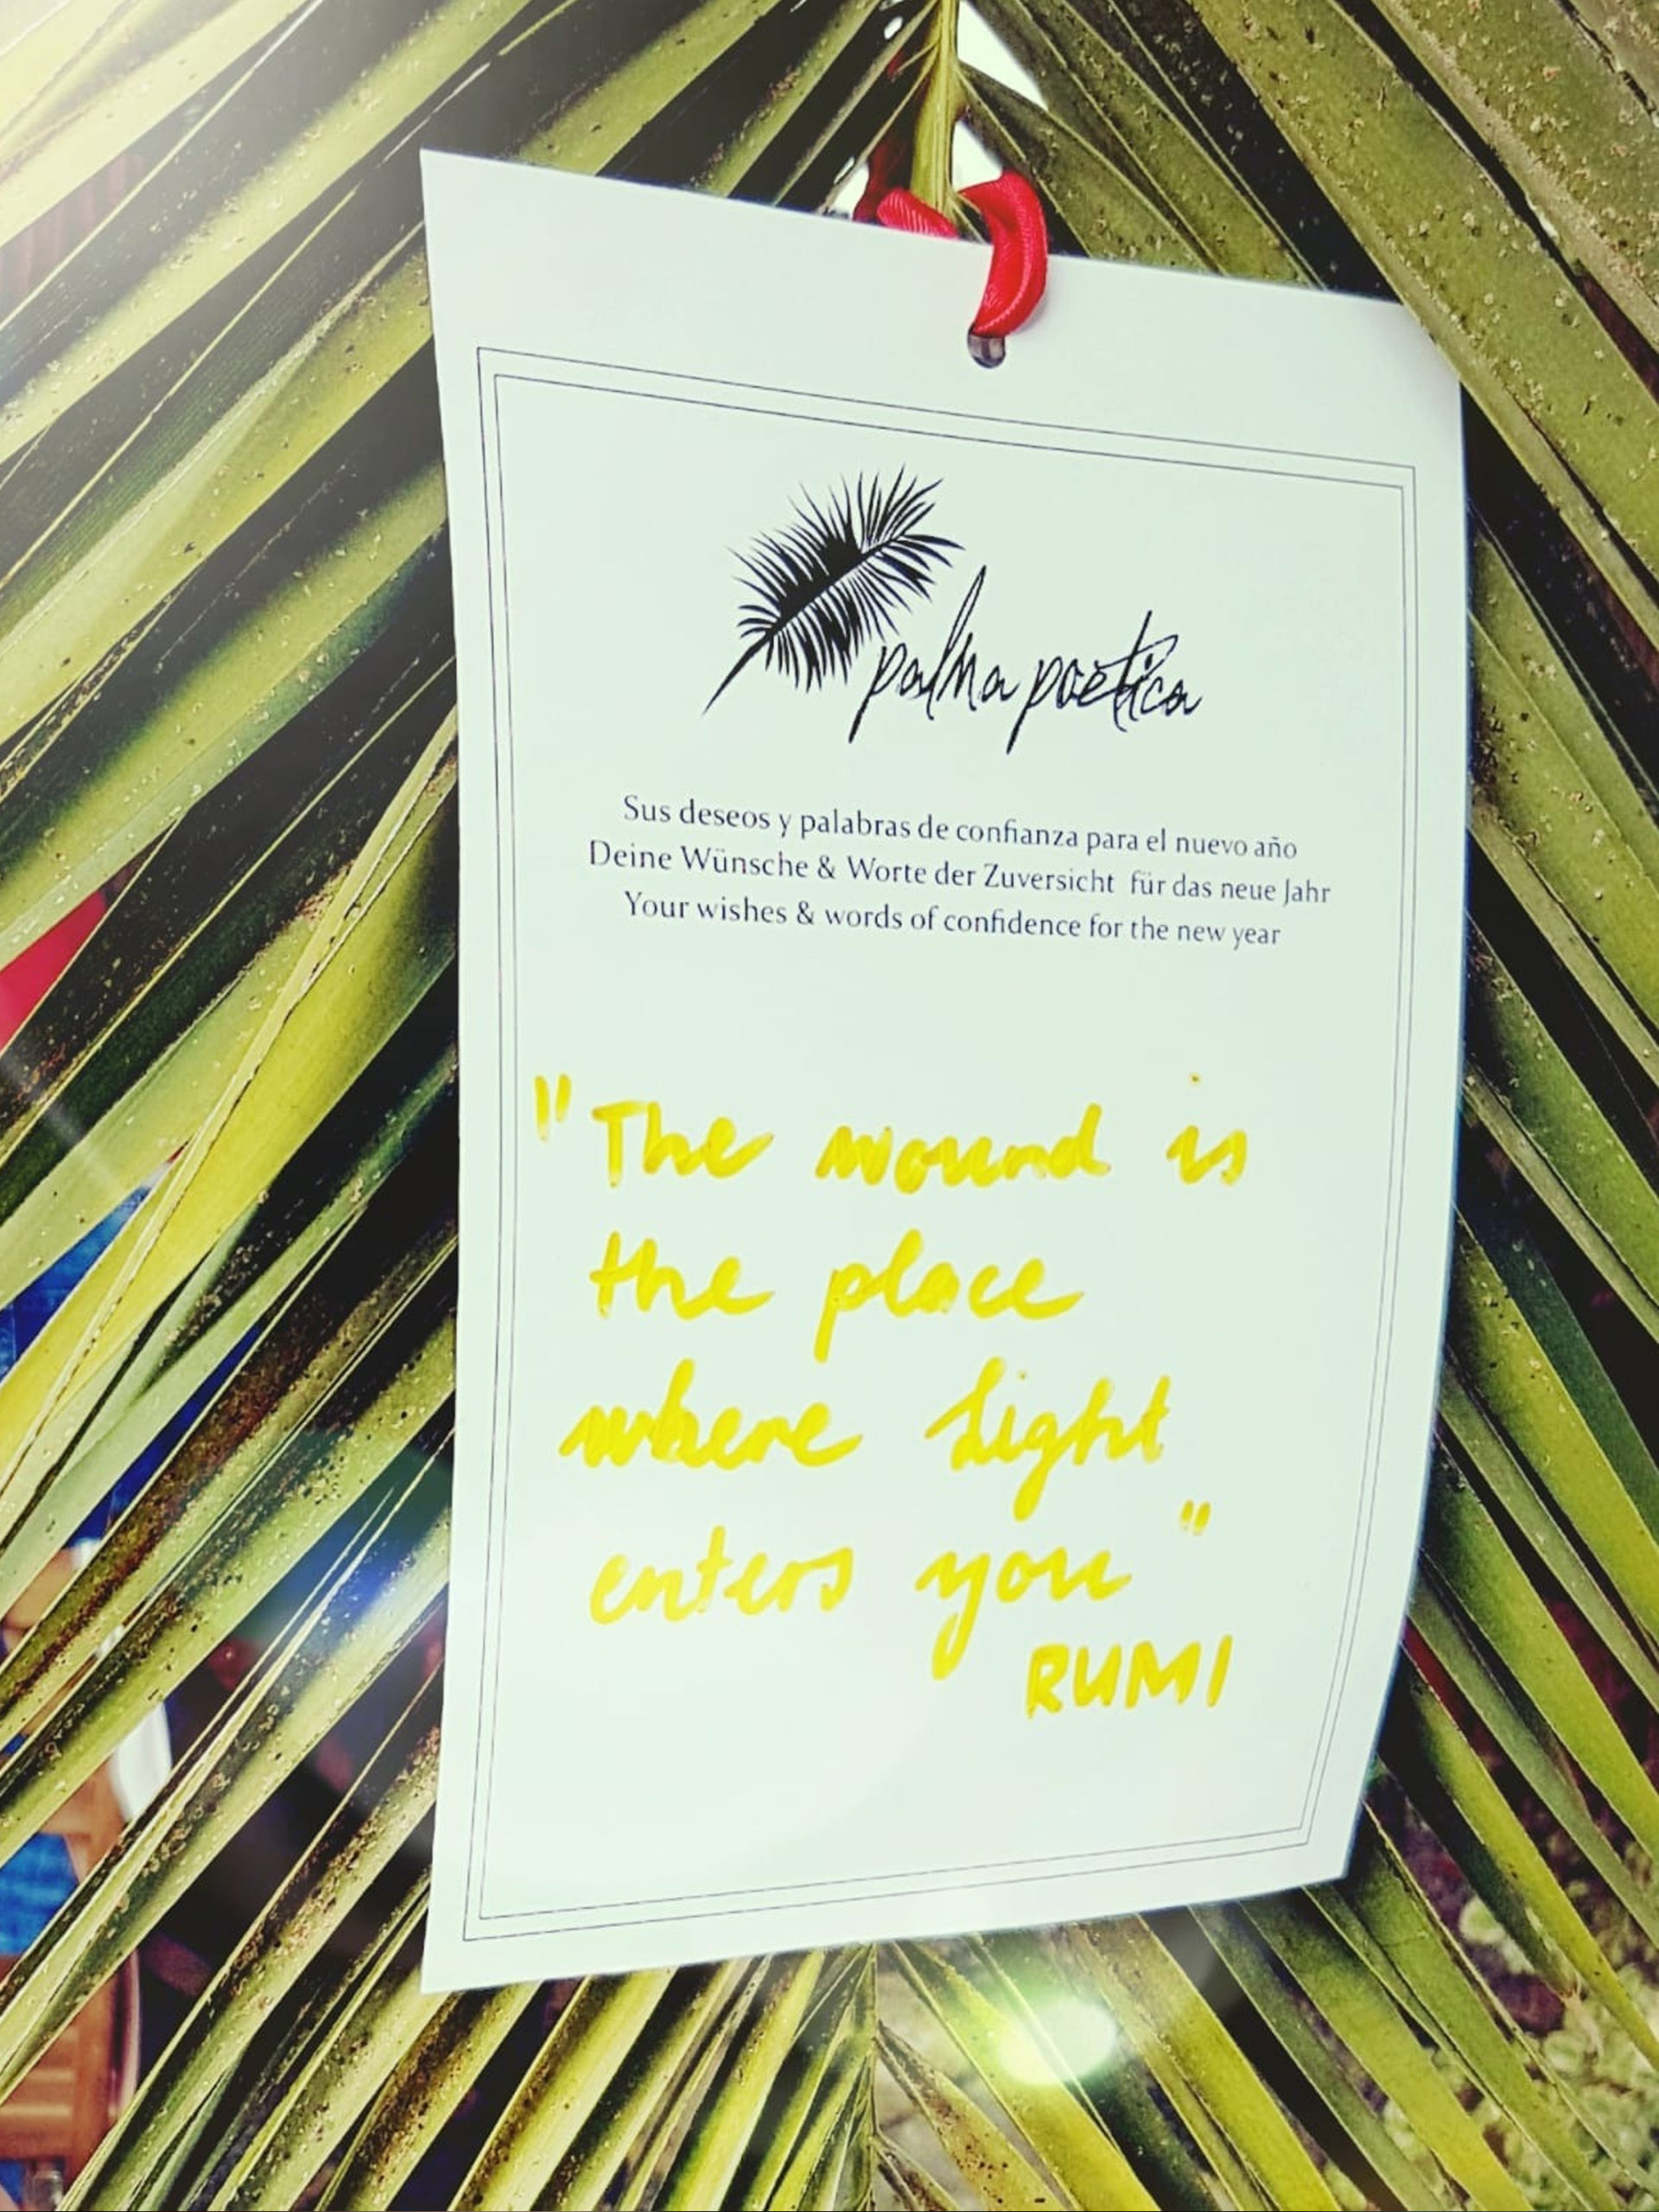 palma poetica
Sus deseos y palabras de confianza para el nuevo año
Deine Wünsche & Worte der Zuversicht für das neue Jahr
Your wishes & words of confidence for the new year
"The wound is
the place
where Light
enters you"
RUMI